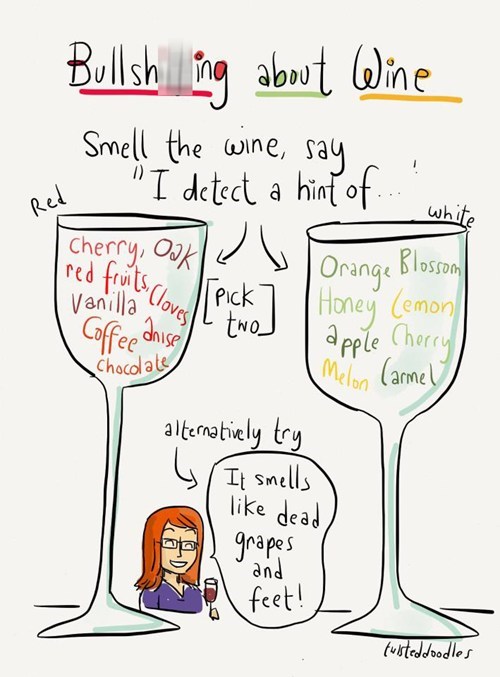 Bullsh ing about Wine
Smell the wine, say
"I detect a hint of..."
Red
Cherry, Oak
red fruits, Cloves
Vanilla
Coffee anise
chocolate
[Pick
two]
white
Orange Blossom
Honey Lemon
apple Cherry
Melon Carmel
alternatively try
It smells
like dead
grapes
and
feet!
twisteddoodles